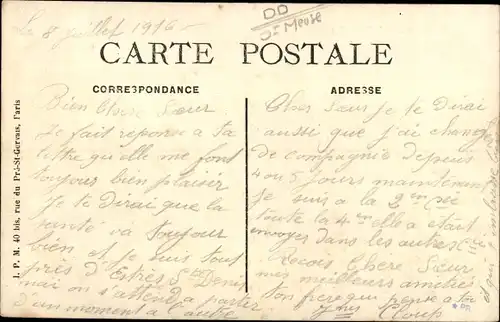 Le 8 juillet 1916
DD
St Meuse
CARTE POSTALE
CORRESPONDANCE
ADRESSE
J. P. M. 40 bis, rue du Pré-St-Gervais, Paris
Bien Chere Sœur
Je fait reponce a ta
lettre qui elle me font
toujour bien plaisir
Je te Dirai que la
sante va toujour
bien et je suis tout
près d'Estrés St Denis
mai on s'attend a partir
D'un moment a l'autre
Cher Sœur Je te Dirai
aussi que j'ai change
de compagnie depuis
4 ou 5 jours maintenan
Je suis a la 2me Cie
toute la 4me elle a était
envoyer dans les autres Cie
Recois Chere Sœur
mes meilleurs amitiés
ton frere qui pense a toi
et qui